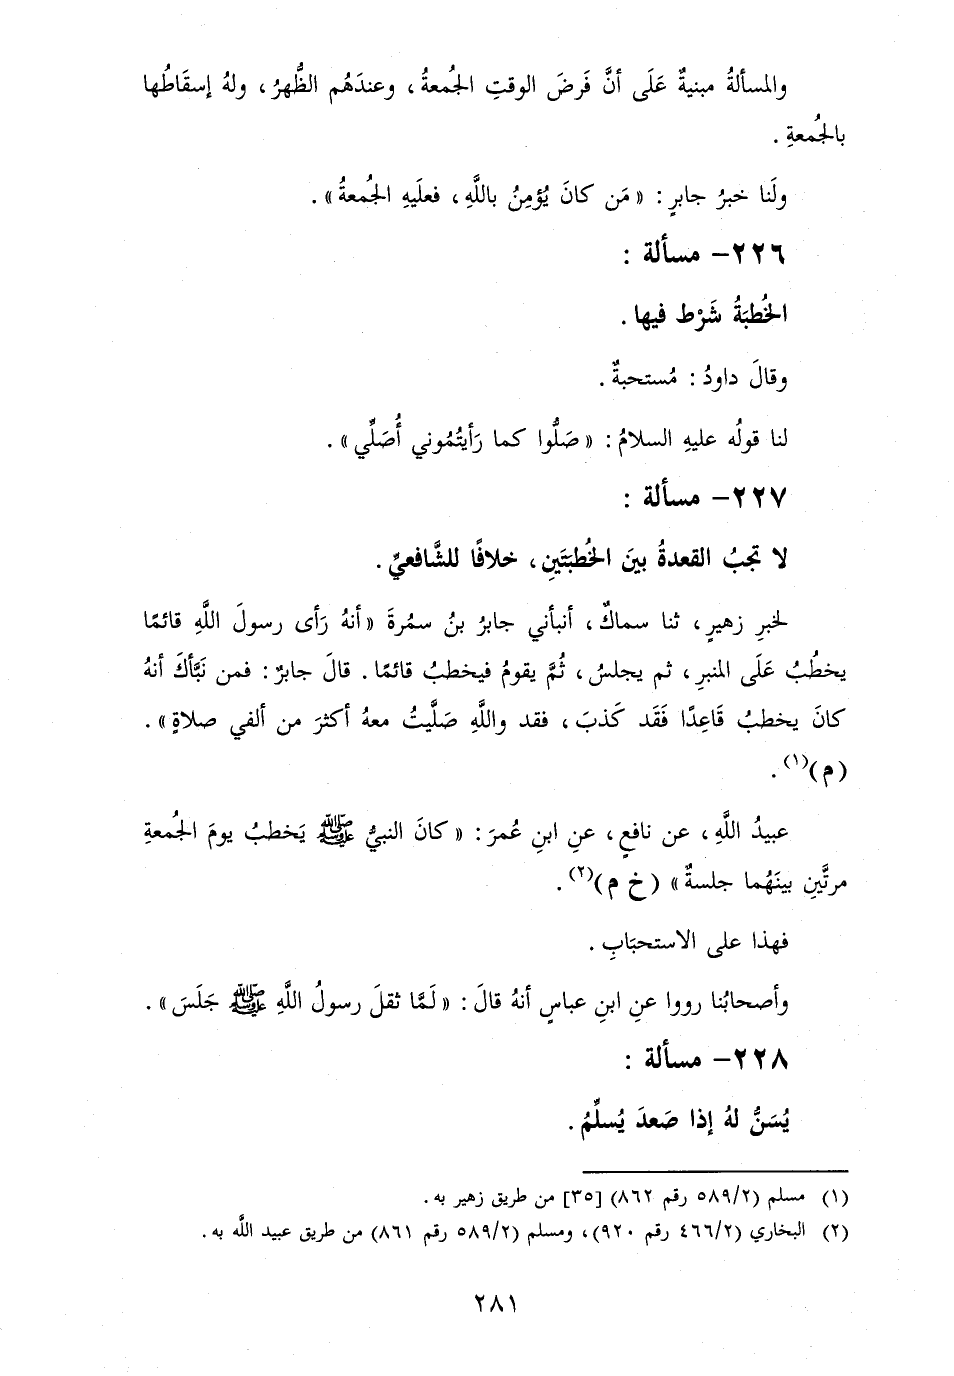 والمسألةُ مبنيةٌ عَلَى أنَّ فَرضَ الوقتِ الجُمعةُ، وعندَهُم الظُّهرُ، ولهُ إسقَاطُها
بالجُمعةِ.
ولَنا خبرُ جابرٍ: «مَن كانَ يُؤمِنُ باللَّهِ، فعلَيهِ الجُمعةُ».
٢٢٦- مسألة:
الخُطبَةُ شَرْط فيها.
وقالَ داودُ: مُستحبةٌ.
لنا قولُه عليهِ السلامُ: «صَلُّوا كما رَأيتُمُوني أُصَلِّي».
٢٢٧- مسألة:
لا تجبُ القعدةُ بينَ الخُطبَتَينِ، خلافًا للشَّافعيِّ.
لخبرِ زهيرٍ، ثنا سماكٌ، أنبأني جابرُ بنُ سمُرةَ «أنهُ رَأى رسولَ اللَّهِ قائمًا
يخطُبُ عَلَى المنبرِ، ثم يجلسُ، ثُمَّ يقومُ فيخطبُ قائمًا. قالَ جابرٌ: فمن نَبَّأكَ أنهُ
كانَ يخطبُ قَاعِدًا فَقَد كَذبَ، فقد واللَّهِ صَلَّيتُ معهُ أكثرَ من ألفي صلاةٍ».
(م)(١).
عبيدُ اللَّهِ، عن نافعٍ، عنِ ابنِ عُمرَ: «كانَ النبيُّ ﷺ يَخطبُ يومَ الجُمعةِ
مرتَّينِ بينَهُما جلسةٌ» (خ م)(٢).
فهذا على الاستحبَابِ.
وأصحابُنا رووا عنِ ابنِ عباسٍ أنهُ قالَ: «لَمَّا ثقلَ رسولُ اللَّهِ ﷺ جَلَسَ».
٢٢٨- مسألة:
يُسَنُّ لهُ إذا صَعدَ يُسلِّمُ.
(١) مسلم (٥٨٩/٢ رقم ٨٦٢) [٣٥] من طريق زهير به.
(٢) البخاري (٤٦٦/٢ رقم ٩٢٠)، ومسلم (٥٨٩/٢ رقم ٨٦١) من طريق عبيد اللَّه به.
٢٨١